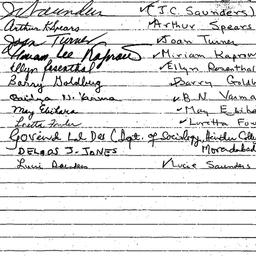 JCSaunders ✓(J.C. SAUNDERS)
Arthur K Spears ✓Arthur Spears
Joan Turner ✓Joan Turner
Miriam Lee Kaprow ✓Miriam Kaprow
Ellyn Rosenthal ✓Ellyn Rosenthal
Barry Goldberg ✓Barry Goldb
Baidya N. Varma ✓B.N. Varma
May Ebihara ✓May Ebiha
Loretta Fowler ✓Loretta Fow
Govind Lal Das (Dpt. of Sociology, Hindu Colle
DELMOS J. JONES Moradabad
Lucie Saunders ✓Lucie Saunders